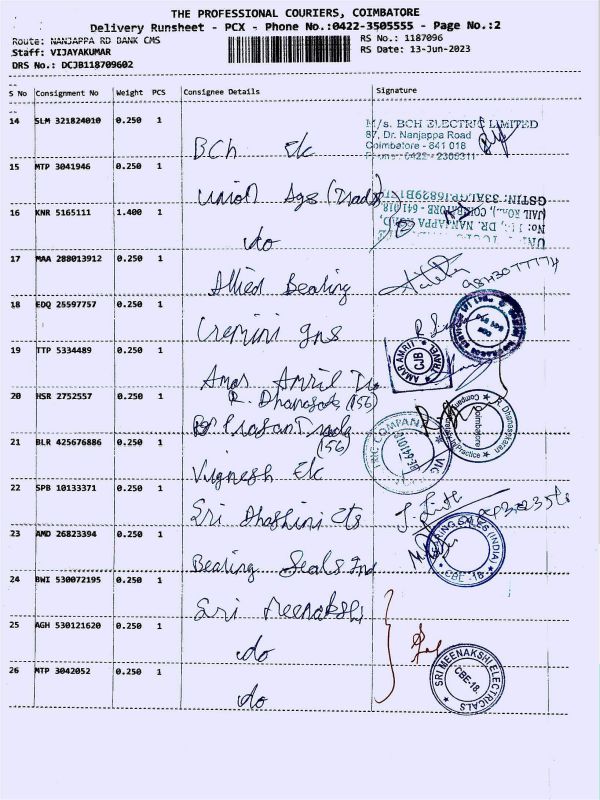 THE PROFESSIONAL COURIERS, COIMBATORE
Delivery Runsheet - PCX - Phone No.:0422-3505555 - Page No.:2
Route: NANJAPPA RD BANK CMS
RS No.: 1187096
Staff: VIJAYAKUMAR
RS Date: 13-Jun-2023
DRS No.: DCJB118709602
S No Consignment No Weight PCS Consignee Details Signature
14 SLM 321824010 0.250 1
M/s. BCH ELECTRIC LIMITED
87, Dr. Nanjappa Road
Coimbatore - 641 018
BCH Elc
15 MTP 3041946 0.250 1
Union Ags (Trads)
16 KNR 5165111 1.400 1
do
17 MAA 288013912 0.250 1
Allied Bearing
9843077774
18 EDQ 25597757 0.250 1
Gemini gns
19 TTP 5334489 0.250 1
AMAR AMRIT
CJB
Amar Amrit
20 HSR 2752557 0.250 1
R. Dhanasek (156)
Coimbatore
Prasan Trade
(156)
21 BLR 425676886 0.250 1
Vignesh Elc
22 SPB 10133371 0.250 1
Sri Dhashini Cts
23 AMD 26823394 0.250 1
BEARING SALES (INDIA)
CBE -18
Bearing Seals Ind
24 BWI 530072195 0.250 1
Sri Meenakshi
25 AGH 530121620 0.250 1
do
26 MTP 3042052 0.250 1
SRI MEENAKSHI ELECTRICALS
CBE-18.
do